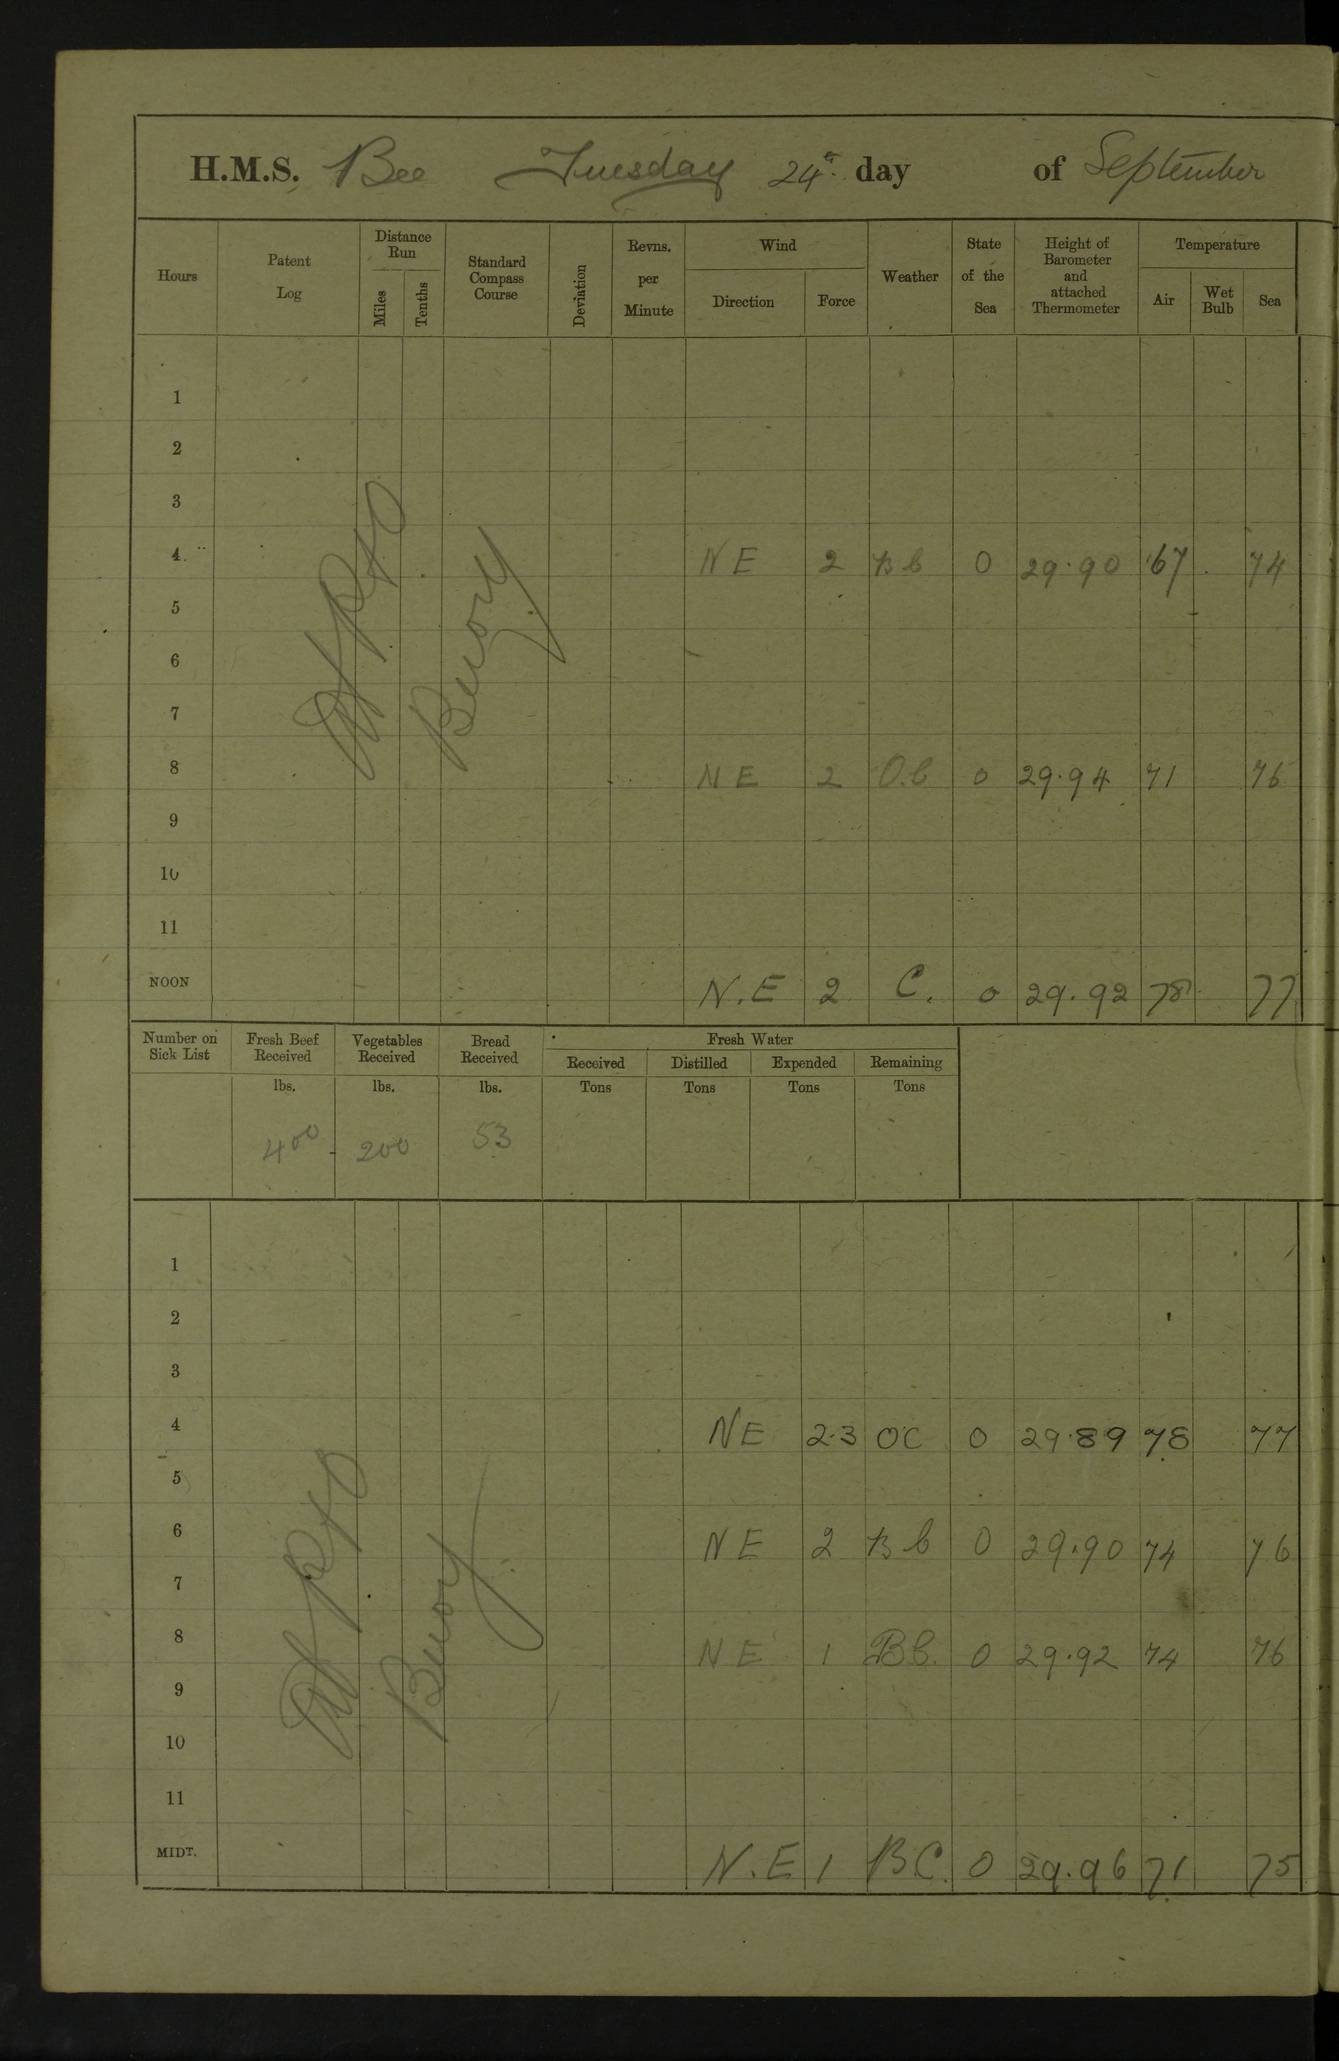 H.M.S. Bee Tuesday 24th day of September
Hours Patent Log Distance Run Miles Tenths Standard Compass Course Deviation Revns. per Minute Wind Direction Force Weather State of the Sea Height of Barometer and attached Thermometer Temperature Air Wet Bulb Sea
1
2
3
4 NE 2 Bb 0 29.90 67 74
5
6
7
8 NE 2 O.b 0 29.94 71 76
9
10
11
NOON N.E 2 C. 0 29.92 78 77
Number on Sick List Fresh Beef Received Vegetables Received Bread Received Fresh Water
Received Distilled Expended Remaining
lbs. lbs. lbs. Tons Tons Tons Tons
400 200 53
1
2
3
4 NE 2.3 OC 0 29.89 78 77
5
6 NE 2 Bb 0 29.90 74 76
7
8 NE 1 Bb. 0 29.92 74 76
9
10
11
MIDT. N.E 1 BC. 0 29.96 71 75